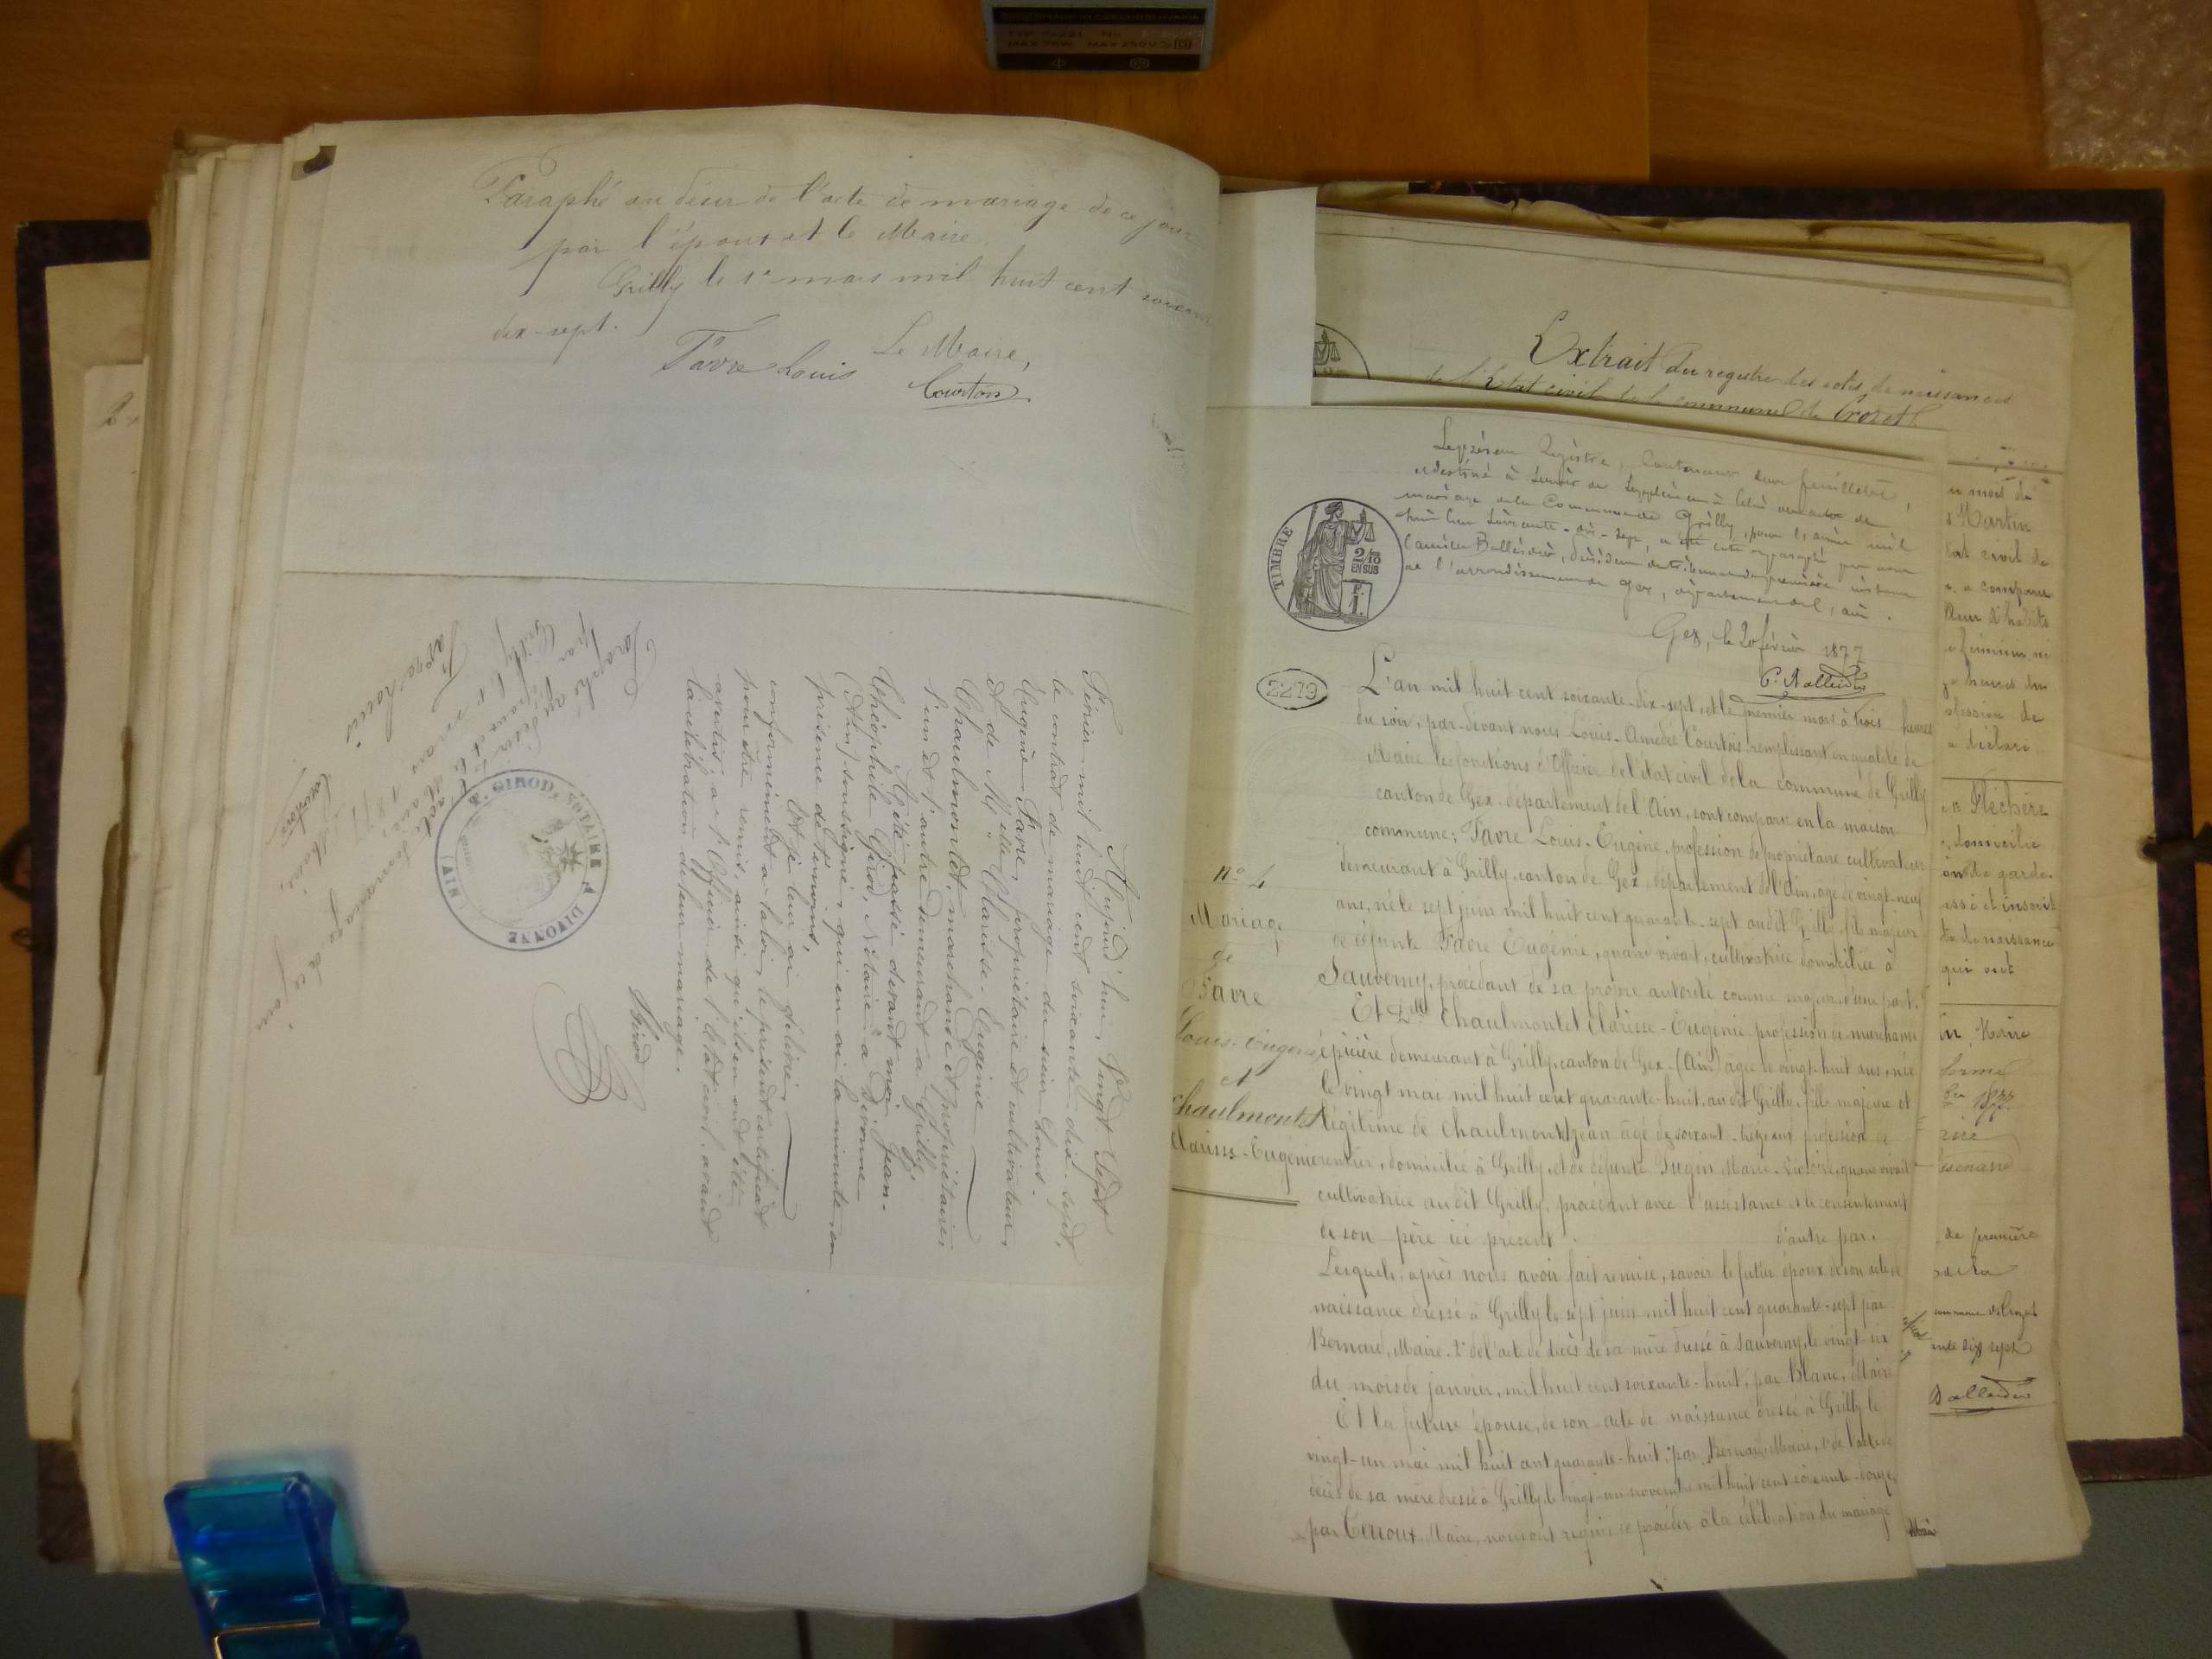 Paraphé au désir de l'acte de mariage de ce jour
par l'époux et le Maire.
Grilly le 1er mars mil huit cent soixante
dix-sept.
Le Maire,
Favre Louis
Courtois
Aujourd'hui, Vingt Sept
Février mil huit cent soixante dix-sept,
le contrat de mariage du sieur Louis-
Eugène Favre, propriétaire et cultivateur,
et de Melle Clarisse-Eugénie
Chaulmontet, marchande et propriétaires
l'un et l'autre demeurant à Grilly,
A été passé devant moi Jean-
Théophile Girod, Notaire à Divonne
(Ain) soussigné, qui en ai la minute, en
présence de témoins,
Et je leur ai délivré,
conformément à la loi, le présent certificat
pour être remis, ainsi qu'ils en ont été
avertis, à l'Officier de l'état civil, avant
la célébration de leur mariage.
Girod
T. GIROD, NOTAIRE A DIVONNE
(AIN)
Paraphé au désir de l'acte de mariage de ce jour
par l'époux et le Maire,
Grilly le 1er mars 1877
Favre Louis
Courtois
Extrait du registre des actes de naissances
de l'Etat civil de la commune de Crozet
Le présent Registre, contenant deux feuillets,
et destiné à servir de supplément à celui des actes de
mariage de la Commune de Grilly, pour l'année mil
huit cent soixante-dix-sept, a été coté et paraphé par nous
président du tribunal de première instance
de l'arrondissement de Gex, département de l'ain.
Gex, le 20 février 1877
TIMBRE
2/10
EN SUS
2279
L'an mil huit cent soixante-dix-sept, et le premier mars à trois heures
du soir, par-devant nous Louis-Amédée Courtois remplissant en qualité de
Maire les fonctions d'Officier de l'état civil de la commune de Grilly
canton de Gex, département de l'Ain, sont comparus en la maison
commune; Favre Louis-Eugène, profession de propriétaire cultivateur
demeurant à Grilly, canton de Gex, département de l'Ain, âgé de vingt-neuf
ans, né le sept juin mil huit cent quarante-sept audit Grilly, fils majeur
de défunte Favre Eugénie, quand vivait, cultivatrice domiciliée à
Sauverny, procédant de sa propre autorité comme majeur, d'une part.
Et Dlle Chaulmontet Clarisse-Eugénie, profession de marchande
épicière demeurant à Grilly, canton de Gex (Ain) âgée de vingt-huit ans, née
le vingt mai mil huit cent quarante-huit, au dit Grilly, fille majeure et
légitime de Chaulmontet Jean âgé de soixante-treize ans profession de
rentier, domicilié à Grilly, et de défunte Pugin Marie-Victoire, quand vivait
cultivatrice au dit Grilly, procédant avec l'assistance et le consentement
de son père ici présent. d'autre part.
Lesquels, après nous avoir fait remise, savoir le futur époux de son acte de
naissance dressé à Grilly le sept juin mil huit cent quarante-sept par
Bernard, Maire. 2° de l'acte de décès de sa mère dressé à Sauverny, le vingt-six
du mois de janvier, mil huit cent soixante-huit, par Blanc, Maire
Et la future épouse, de son acte de naissance dressé à Grilly le
vingt-un mai mil huit cent quarante-huit, par Bernard Maire, 2° de l'acte de
décès de sa mère dressé à Grilly, le vingt-un novembre mil huit cent soixante-douze
par Maire, nous ont requis de procéder à la célébration du mariage
n° 4
Mariage
de
Favre
Louis-Eugène
et
Chaulmontet
Clarisse-Eugénie
mois de
Martin
état civil de
a comparu
féminin
heures du
profession de
déclaré
Fléchère
domicilié
de garde
et inscrit
de naissance
qui ont
Maire
1877
de première
commune de Crozet
dix sept